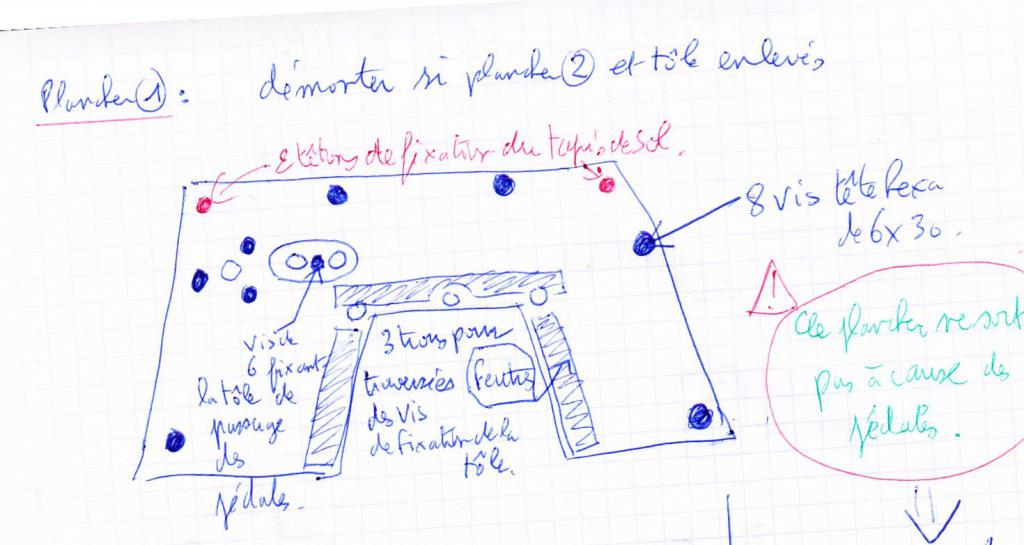 Plancher ① : démonter si plancher ② et tôle enlevés
2 têtons de fixation du tapis de sol.
8 vis tête hexa
de 6x30.
!
Ce plancher ne sort
pas à cause des
pédales.
vis de
6 fixant
la tôle de
passage
des
pédales.
3 trous pour
traversées
des vis
de fixation de la
tôle.
feutre